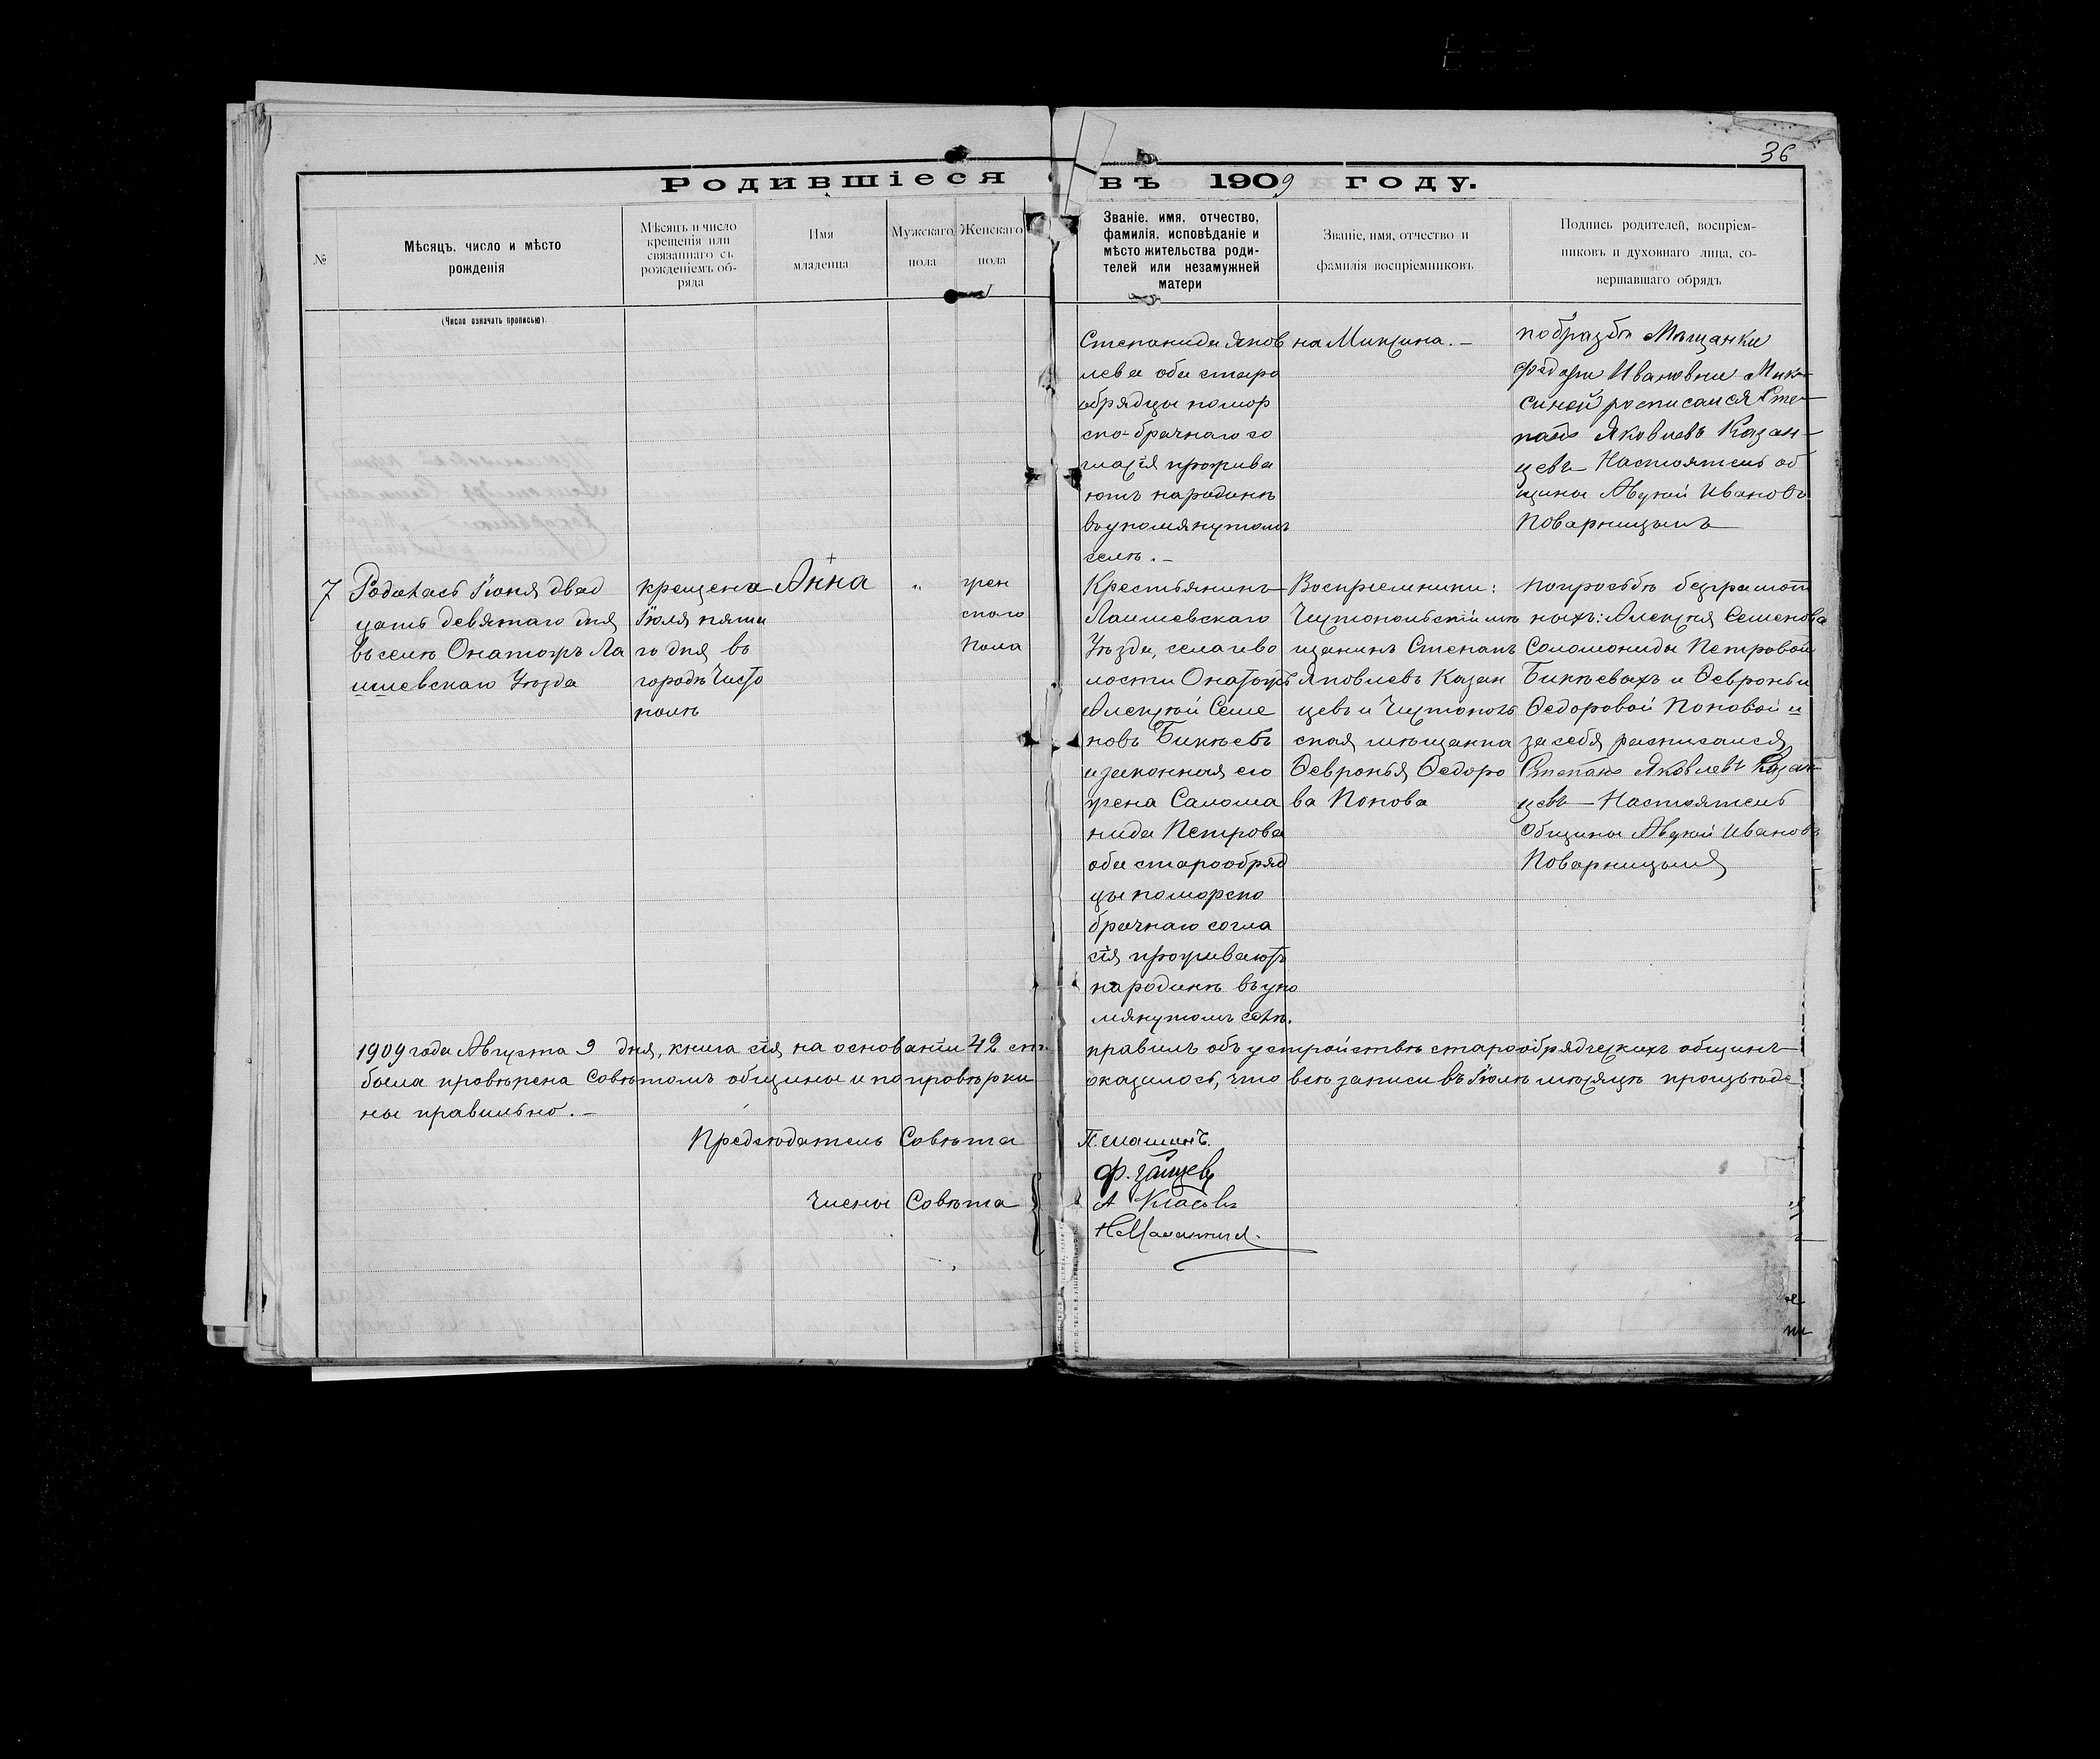 36
Родившіеся въ 1909 году.
№
Мѣсяцъ, число и мѣсто
рожденія
Мѣсяцъ и число
крещенія или
связаннаго съ
рожденіемъ об-
ряда
Имя
младенца
Мужскаго
пола
Женскаго
пола
Званіе, имя, отчество,
фамилія, исповѣданіе и
мѣсто жительства роди-
телей или незамужней
матери
Званіе, имя, отчество и
фамилія воспріемниковъ
Подпись родителей, воспріем-
никовъ и духовнаго лица, со-
вершавшаго обрядъ
(Число означать прописью).
Степанида Яков
лева оба старо
обрядцы помор
ско-брачнаго со
гласія прожива
ютъ народинѣ
въ упомянутомъ
селѣ. –
на Микшина. –
Мѣщанки
Ивановны Мик-
синой росписался Сте-
панъ Яковлевъ Казан-
цевъ – Настоятель об
щины Авдѣй Ивановъ
Поварницынъ
7
Родилась Іюня двад
цать девятаго дня
въ селѣ Онатошъ Ла
ишевскаго Уѣзда
крещена
Іюля пята
го дня въ
городѣ Чисто
полѣ
Анна
„
жен
скаго
пола
Крестьянинъ
Лаишевскаго
Уѣзда, села и во
лости Онатошъ
Алексѣй Семе
новъ Бикѣевъ
и законная его
жена Саломо
нида Петрова
оба старообряд
цы поморско
брачнаго согла
сія проживаютъ
народинѣ въ упо
мянутомъ селѣ.
Воспріемники:
Чистопольскій мѣ
щанинъ Степанъ
Яковлевъ Казан
цевъ и Чистополь
ская мѣщанка
Ѳевронья Ѳедоро
ва Попова
По просьбѣ безграмот
ныхъ: Алексѣя Семенова
Соломониды Петровой
Бикѣевыхъ и Ѳевроньи
Ѳедоровой Поповой и
за себя расписался
Степанъ Яковлевъ Казан
цевъ – Настоятель
Общины Авдѣй Ивановъ
Поварницынъ
1909 года Августа 9 дня, книга сія на основаніи 42 ст. правилъ объ устройствѣ старообрядческихъ общинъ
была провѣрена Совѣтомъ общины и по провѣрки оказалось, что всѣ записи въ Іюлѣ мѣсяцѣ произведе
ны правильно. –
Предсѣдатель Совѣта П. Шашинъ.
Члены Совѣта